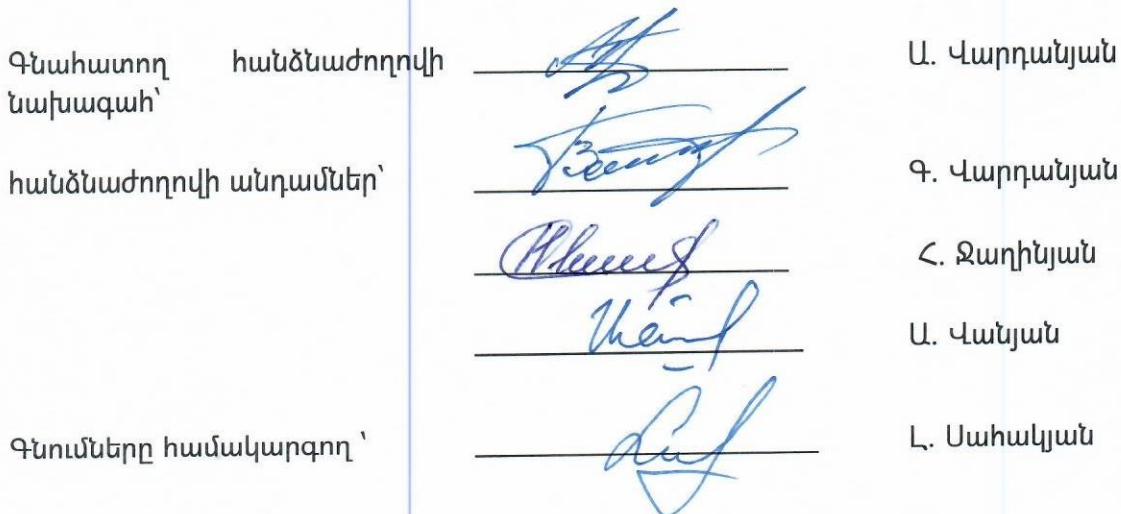 Գնահատող հանձնաժողովի Ա. Վարդանյան
նախագահ՝
հանձնաժողովի անդամներ՝ Գ. Վարդանյան
Հ. Ջաղինյան
Ա. Վանյան
Գնումները համակարգող ՝ Լ. Սահակյան